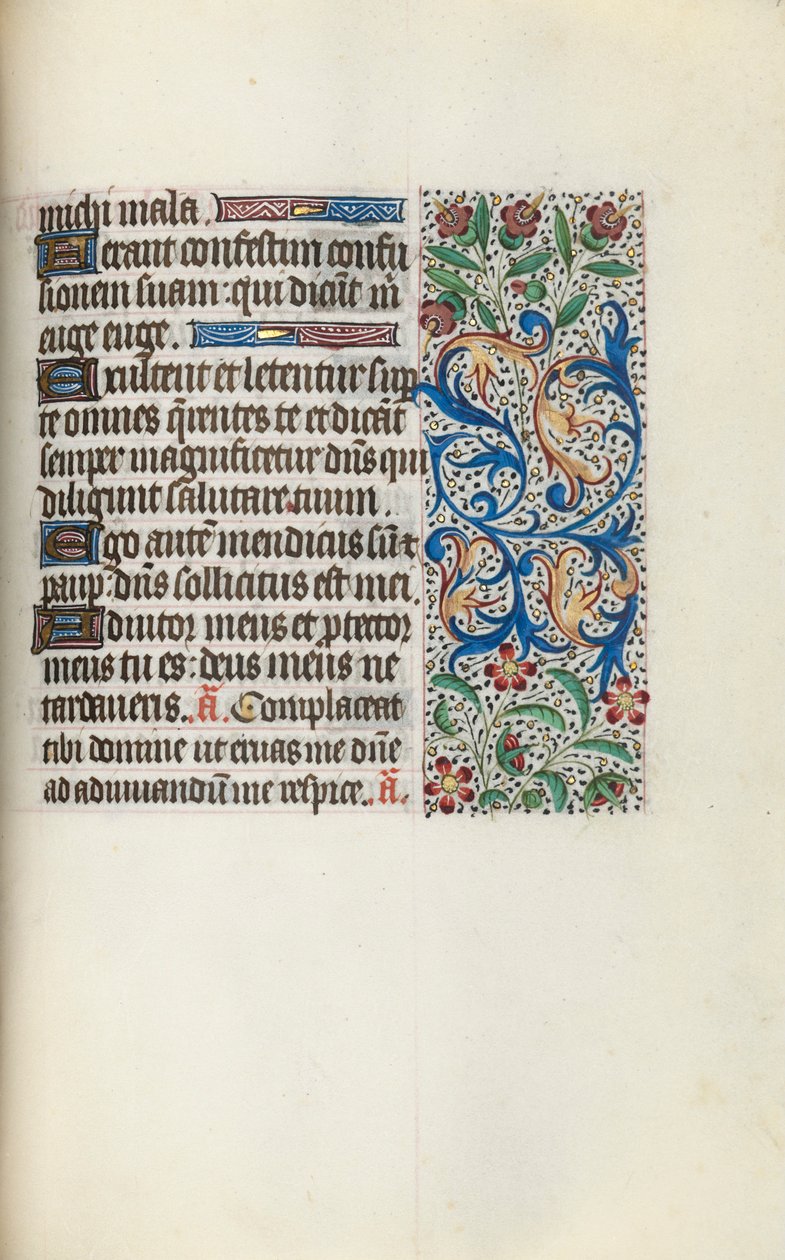 michi mala.
Ferant confestim confu
sionem suam: qui dicūt m̄
euge euge.
Exultent et letentur sup
te omnes q̄rentes te et dicāt
semper magnificetur dn̄s qui
diligunt salutare tuum.
Ego autē mendicus sū et
paup: dn̄s sollicitus est mei.
Adiutor meus et ꝓtector
meus tu es: deus meus ne
tardaueris. a̅. Complaceat
tibi domine ut eruas me dn̄e
ad adiuuandū me respice. a̅.